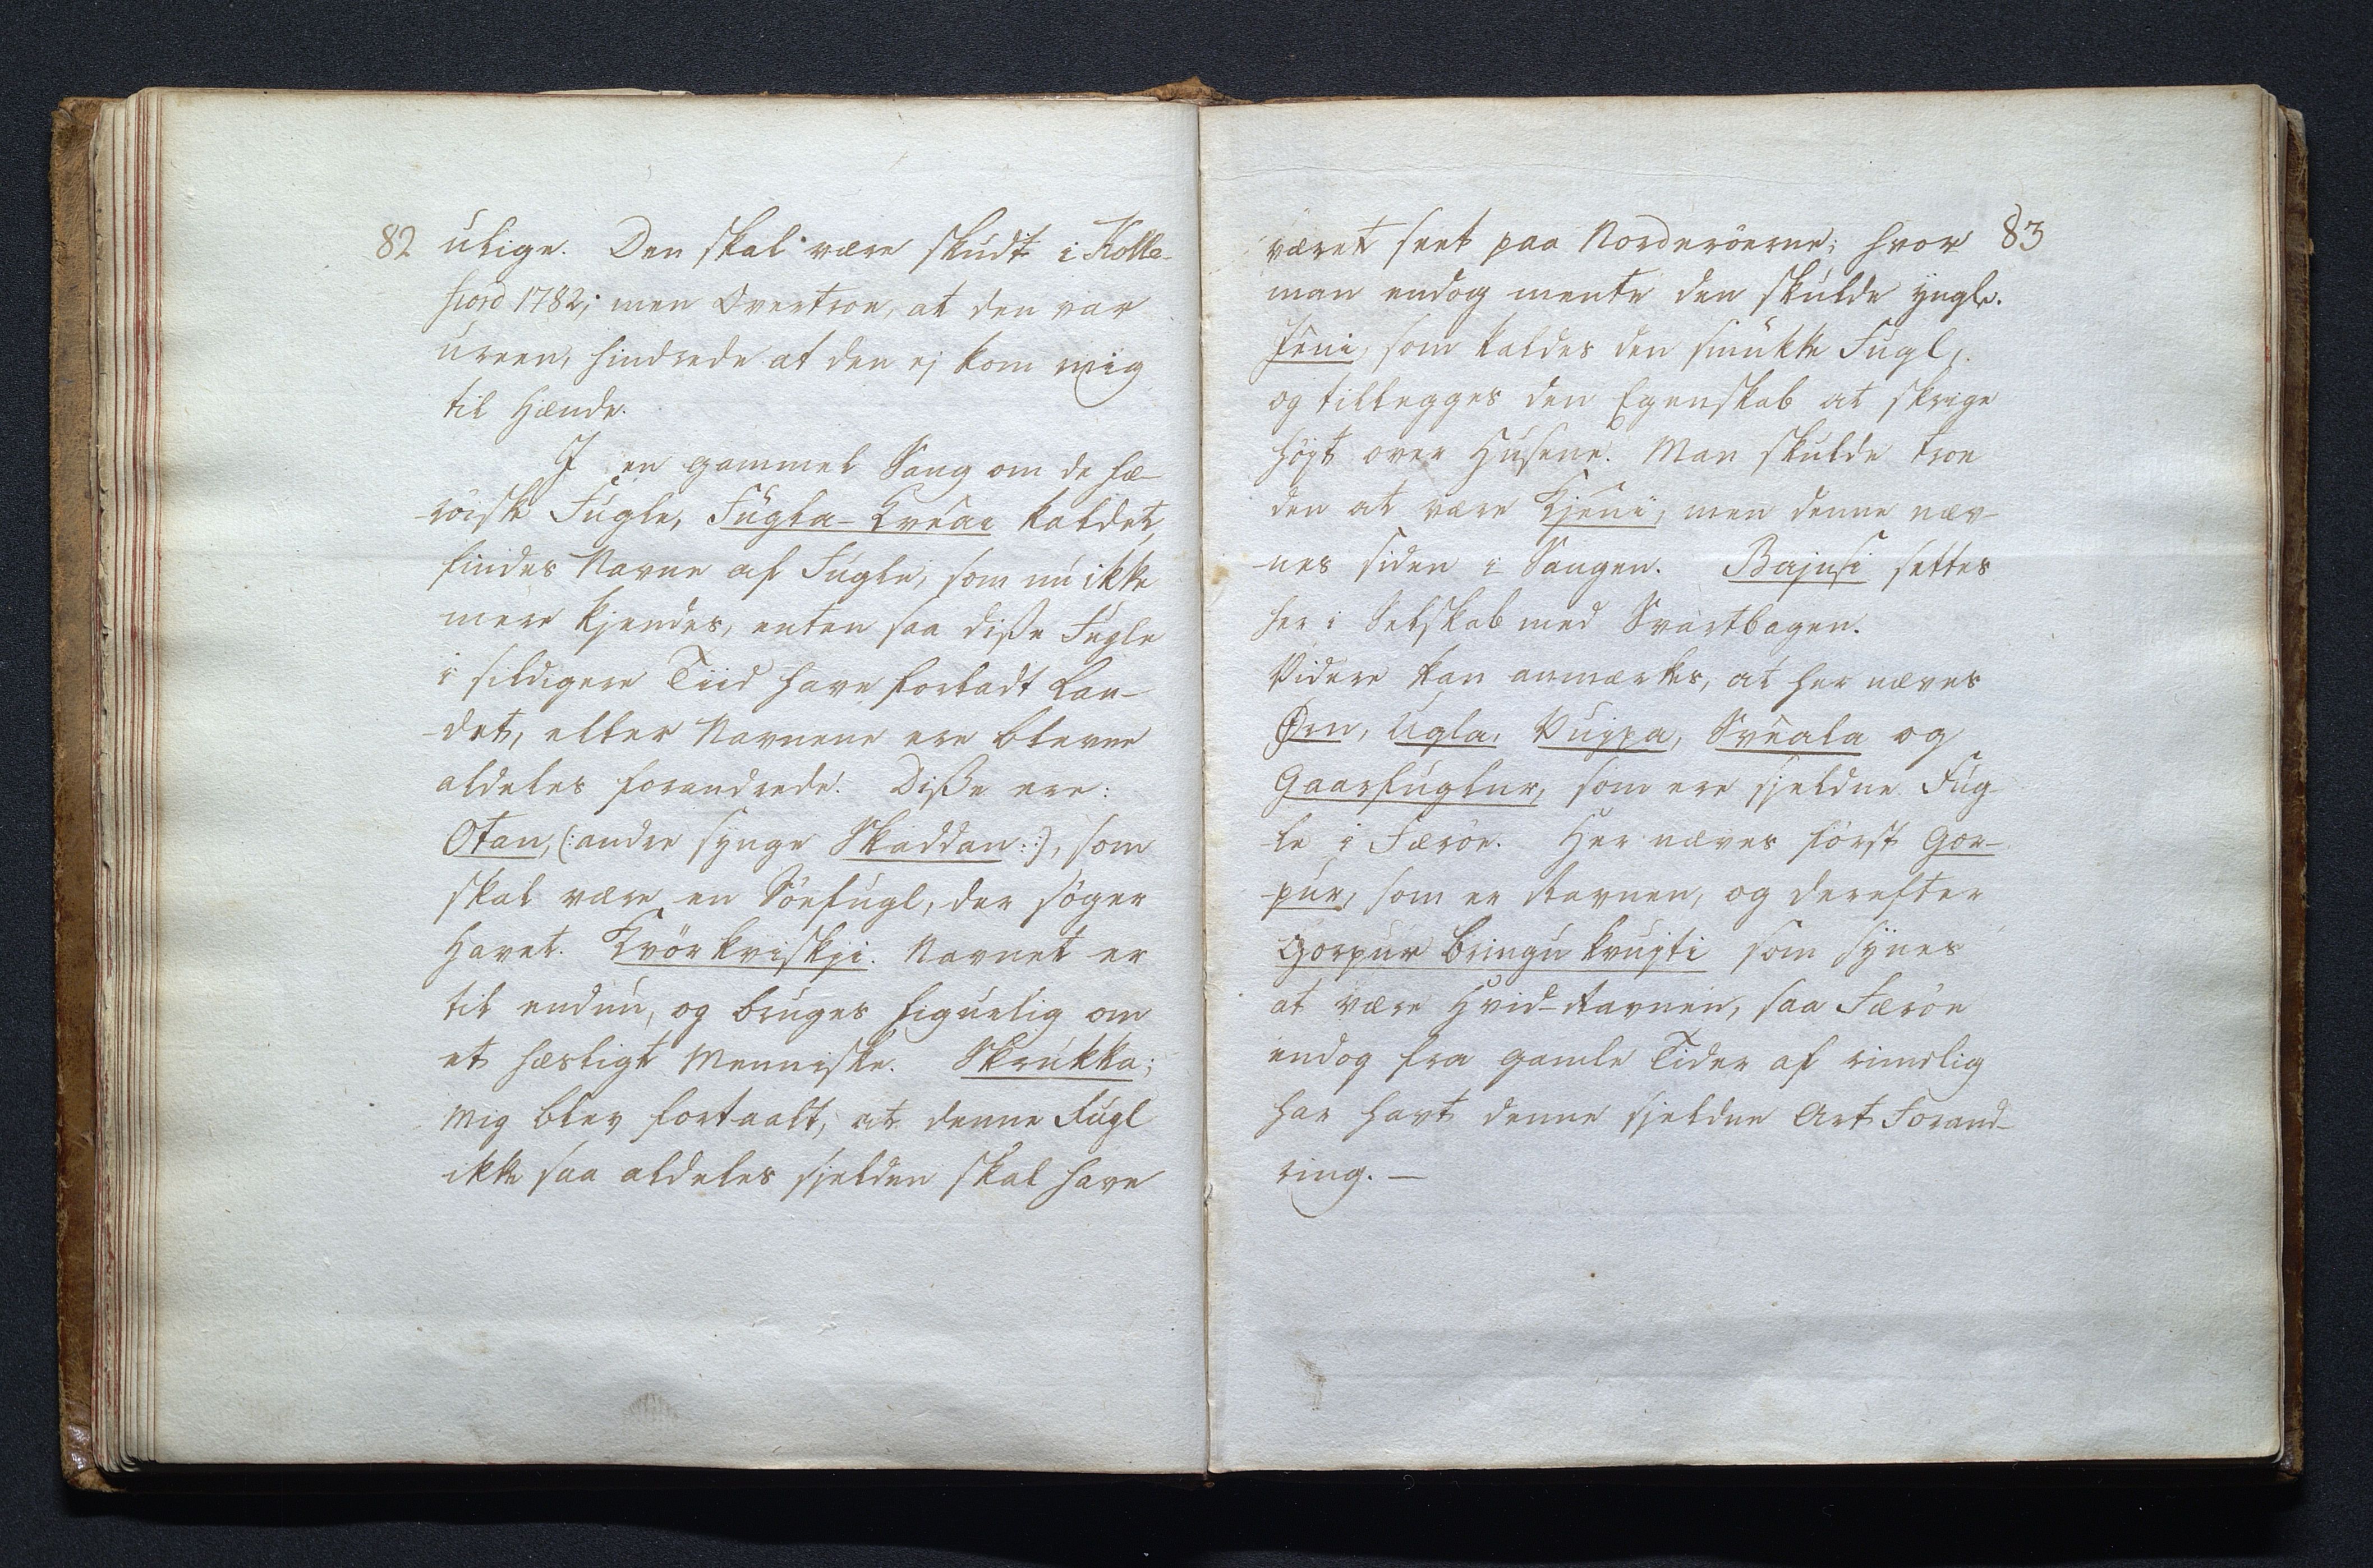 82
ulige. Den skal være skudt i Kolle-
fiord 1782; men Overtroe, at den var
ureen, hindrede at den ej kom mig
til Hænde.
I en gammel Sang om de fæ-
röiske Fugle, Fugla-Kvéai kaldet,
findes Navne af Fugle, som nu ikke
mere kjendes, enten saa disse Fugle
i sildigere Tiid have forladt Lan-
det, eller Navnene ere blevne
aldeles forandrede. Disse ere:
Otan, (: andre synge Skaddan :), som
skal være en Söefugl, der søger
Havet. Kvörkviskji. Navnet er
til endnu, og bruges figuelig om
et hæsligt Menniske. Skrukka;
mig blev fortaalt, at denne Fugl
ikke saa aldeles sjelden skal have
83
været seet paa Norderöerne; hvor
man endog mente den skulde yngle.
Jeni, som kaldes den smukke Fugl,
og tillegges den Egenskab at skrige
høyt over Husene. Man skulde troe
den at være Kjeui, men denne næv-
nes siden i Sangen. Bajusi settes
her i Selskab med Svartbagen.
Videre kan anmærkes, at her næves
Örn, Ugla, Vujpa, Svéala og
Gaarfuglur, som ere sjeldne Fug-
le i Færöe. Her næves først Gor-
pur, som er Ravnen, og derefter
Gorpur bringu kvujti som synes
at være Hvid-Ravnen, saa Færöe
endog fra gamle Tider af rimelig
har havt denne sjeldne Art Forand-
ring. —